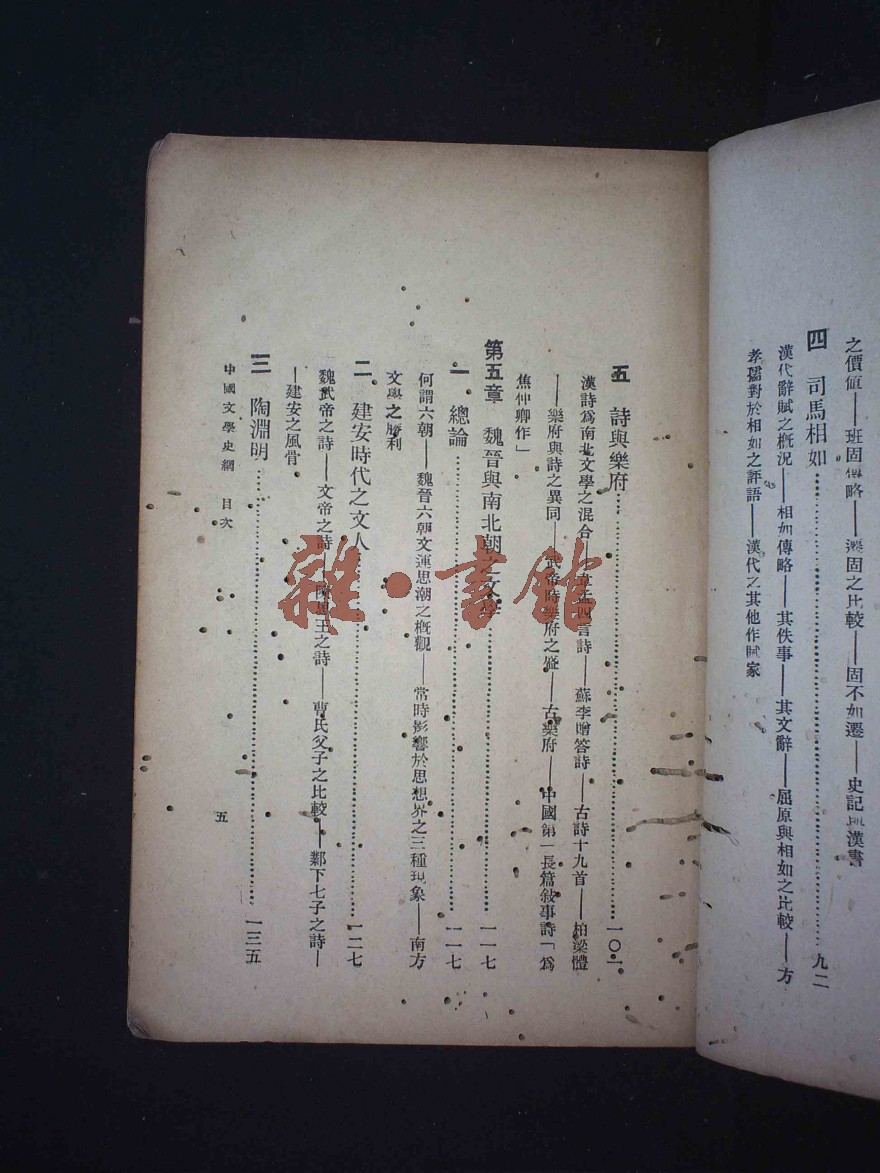 之價值——班固傳略——遷固之比較——固不如遷——史記與漢書
四　司馬相如……九二
漢代辭賦之概況——相如傳略——其佚事——其文辭——屈原與相如之比較——方
孝孺對於相如之評語——漢代之其他作賦家
五　詩與樂府……一〇一
漢詩爲南北文學之混合——韋孟四言詩——蘇李贈答詩——古詩十九首——柏梁體
——樂府與詩之異同——武帝時樂府之盛——古樂府——中國第一長篇敍事詩「爲
焦仲卿作」
第五章　魏晉與南北朝之文學……一一七
一　總論……一一七
何謂六朝——魏晉六朝文運思潮之概觀——當時影響於思想界之三種現象——南方
文學之勝利
二　建安時代之文人……一二七
魏武帝之詩——文帝之詩——陳思王之詩——曹氏父子之比較——鄴下七子之詩—
—建安之風骨
三　陶淵明……一三五
中國文學史綱　目次
五
雜·書館